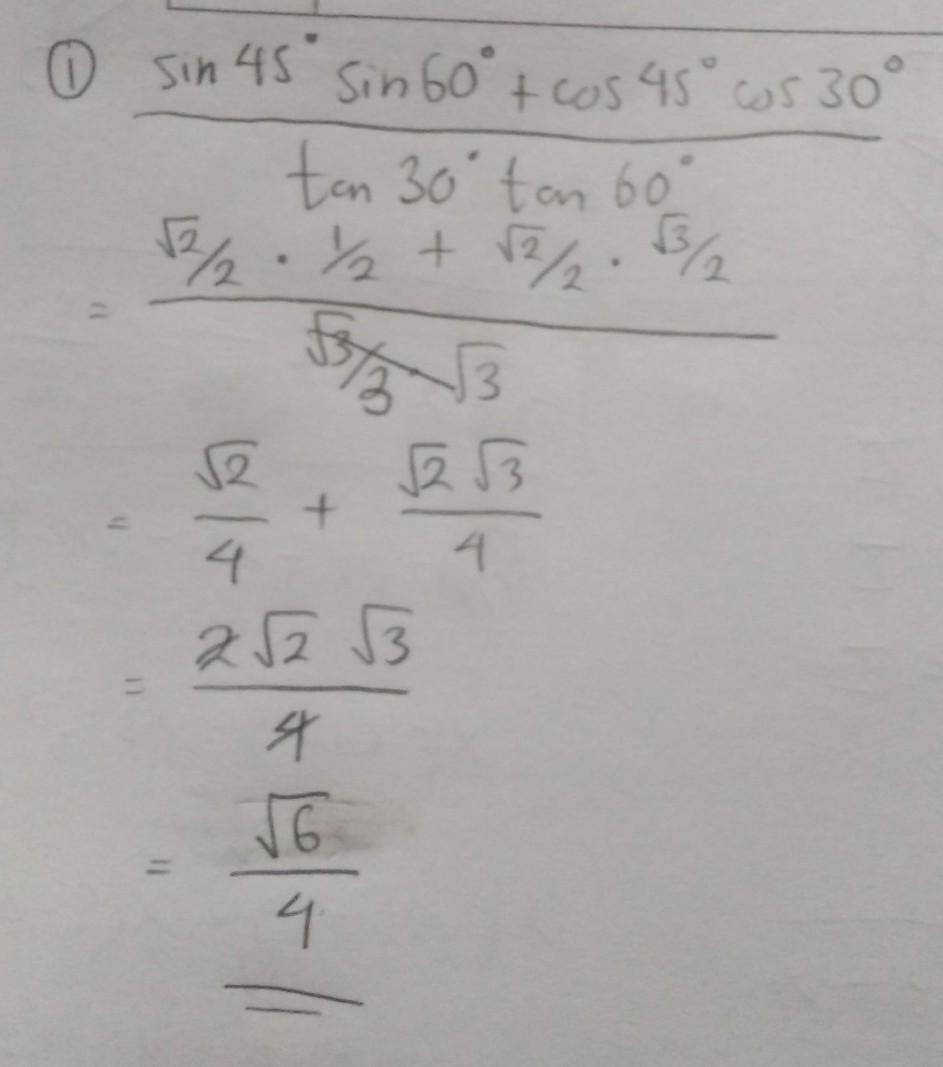 ① sin 45° sin 60° + cos 45° cos 30°
tan 30° tan 60°
= √2/2 · 1/2 + √2/2 · √3/2
√3/3 √3
= √2/4 + √2 √3/4
= 2√2 √3/4
= √6/4